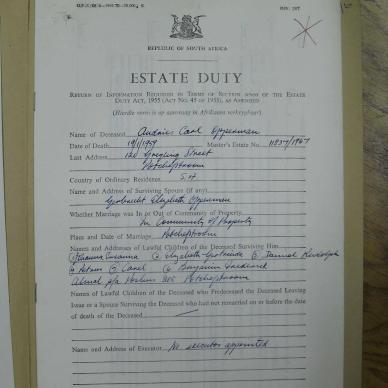 REV. 267
REPUBLIC OF SOUTH AFRICA
ESTATE DUTY
RETURN OF INFORMATION REQUIRED IN TERMS OF SECTION SEVEN OF THE ESTATE
DUTY ACT, 1955 (ACT NO. 45 OF 1955), AS AMENDED
(Hierdie vorm is op aanvraag in Afrikaans verkrygbaar)
Name of Deceased Andries Carl Opperman
Date of Death 19/1/1959 Master's Estate No. 11837/1967
Last Address Street
Potchefstroom
Country of Ordinary Residence S.A.
Name and Address of Surviving Spouse (if any)
Elizabeth Opperman
Whether Marriage was In or Out of Community of Property
In Community of Property
Place and Date of Marriage Potchefstroom
Names and Addresses of Lawful Children of the Deceased Surviving Him
Susanna Elizabeth Gertruida Daniel Rudolph
Petrus Carel Benjamin
Almal p/a Potchefstroom
Names of Lawful Children of the Deceased who Predeceased the Deceased Leaving
Issue or a Spouse Surviving the Deceased who had not remarried on or before the date
of death of the Deceased
Name and Address of Executor No executor appointed